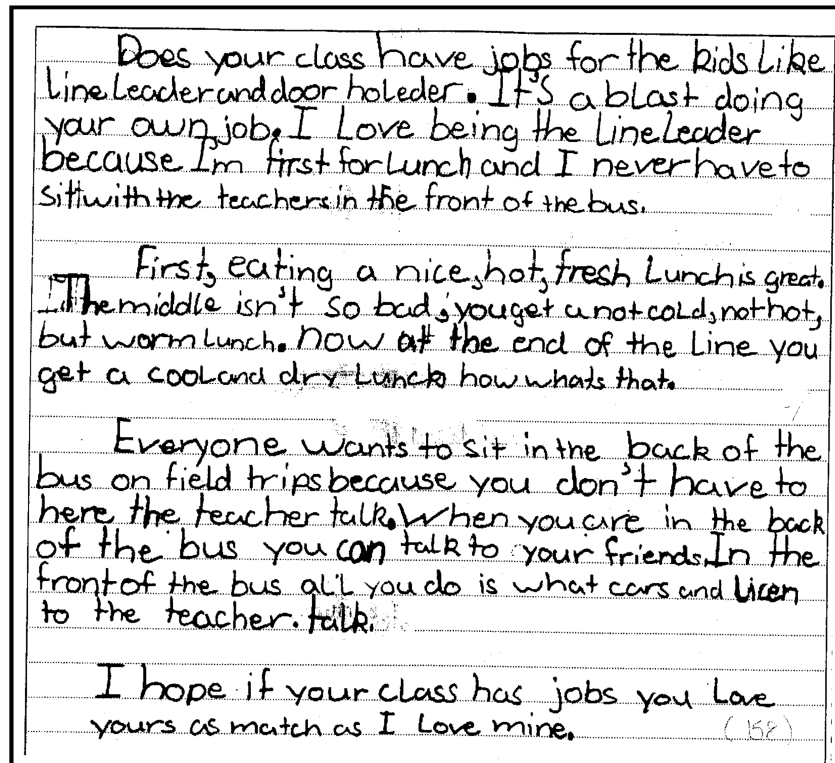 Does your class have jobs for the kids like
line leader and door holeder. It's a blast doing
your own job. I Love being the line leader
because I'm first for lunch and I never have to
sitt with the teachers in the front of the bus.
First, eating a nice, hot, fresh Lunch is great.
The middle isn't so bad, you get a not cold, not hot,
but worm lunch. now at the end of the line you
get a cool and dry Lunch how whats that.
Everyone wants to sit in the back of the
bus on field trips because you don't have to
here the teacher talk. When you are in the back
of the bus you can talk to your friends. In the
front of the bus all you do is what cars and licen
to the teacher. talk.
I hope if your class has jobs you Love
yours as match as I Love mine.
(158)